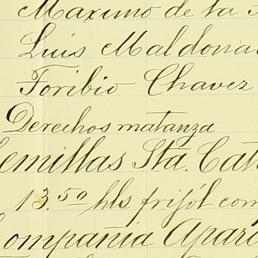 Maximo de la
Luis Maldona
Toribio Chavez
Derechos matanza
Semillas Sta. Cat
13.50 hls frijól com
Compañia Apar